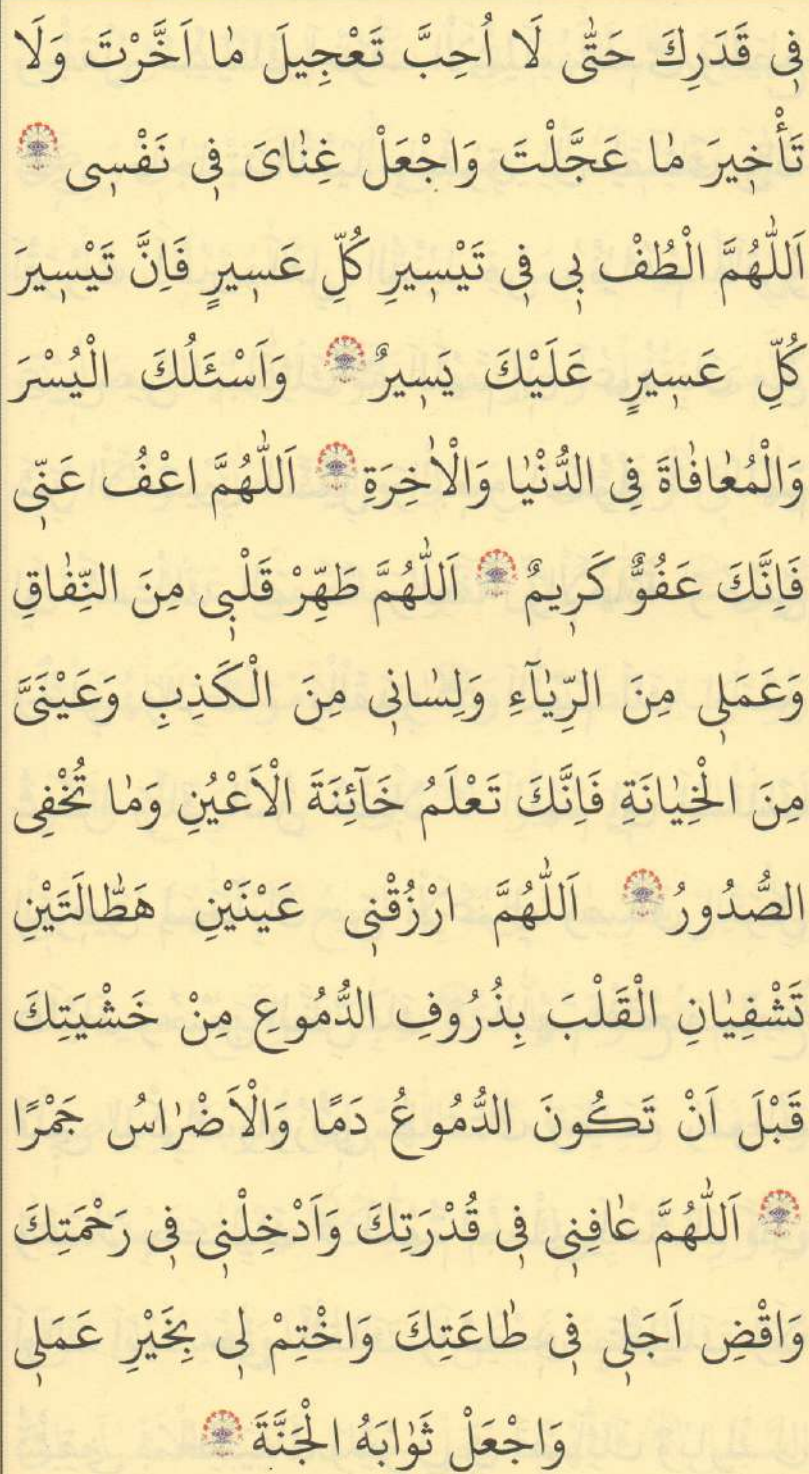 فِي قَدَرِكَ حَتّٰى لَا اُحِبَّ تَعْجِيلَ مٰا اَخَّرْتَ وَلَا
تَأْخِيرَ مٰا عَجَّلْتَ وَاجْعَلْ غِنٰاىَ فِي نَفْسِي
اَللّٰهُمَّ الْطُفْ بِي فِي تَيْسِيرِ كُلِّ عَسِيرٍ فَاِنَّ تَيْسِيرَ
كُلِّ عَسِيرٍ عَلَيْكَ يَسِيرٌ وَاَسْئَلُكَ الْيُسْرَ
وَالْمُعٰافٰاةَ فِي الدُّنْيٰا وَالْاٰخِرَةِ اَللّٰهُمَّ اعْفُ عَنّ۪ي
فَاِنَّكَ عَفُوٌّ كَرِيمٌ اَللّٰهُمَّ طَهِّرْ قَلْبِي مِنَ النِّفٰاقِ
وَعَمَلِي مِنَ الرِّيٰٓاءِ وَلِسٰانِي مِنَ الْكَذِبِ وَعَيْنَىَّ
مِنَ الْخِيٰانَةِ فَاِنَّكَ تَعْلَمُ خَٓائِنَةَ الْاَعْيُنِ وَمٰا تُخْفِي
الصُّدُورُ اَللّٰهُمَّ ارْزُقْنِي عَيْنَيْنِ هَطّٰالَتَيْنِ
تَشْفِيٰانِ الْقَلْبَ بِذُرُوفِ الدُّمُوعِ مِنْ خَشْيَتِكَ
قَبْلَ اَنْ تَكُونَ الدُّمُوعُ دَمًا وَالْاَضْرٰاسُ جَمْرًا
اَللّٰهُمَّ عٰافِنِي فِي قُدْرَتِكَ وَاَدْخِلْنِي فِي رَحْمَتِكَ
وَاقْضِ اَجَلِي فِي طٰاعَتِكَ وَاخْتِمْ لِي بِخَيْرِ عَمَلِي
وَاجْعَلْ ثَوٰابَهُ الْجَنَّةَ